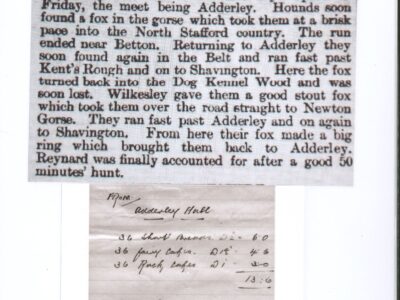 Friday, the meet being Adderley. Hounds soon
found a fox in the gorse which took them at a brisk
pace into the North Stafford country. The run
ended near Betton. Returning to Adderley they
soon found again in the Belt and ran fast past
Kent's Rough and on to Shavington. Here the fox
turned back into the Dog Kennel Wood and was
soon lost. Wilkesley gave them a good stout fox
which took them over the road straight to Newton
Gorse. They ran fast past Adderley and on again
to Shavington. From here their fox made a big
ring which brought them back to Adderley.
Reynard was finally accounted for after a good 50
minutes' hunt.
Adderley Hall
36
36 fancy cakes
36 Rock cakes
13:6